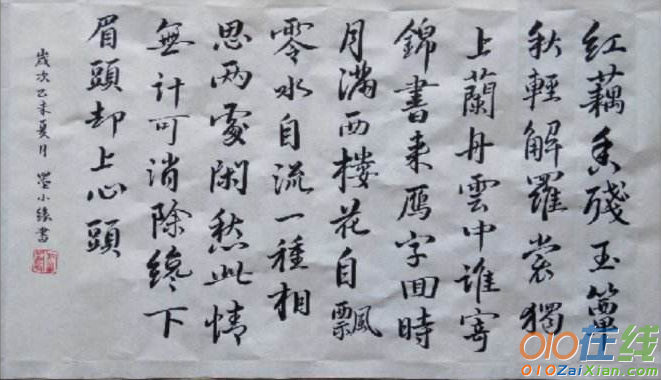 紅藕香殘玉簟
秋輕解羅裳獨
上蘭舟雲中誰寄
錦書来雁字回時
月滿西樓花自飄
零水自流一種相
思两處閑愁此情
無計可消除纔下
眉頭却上心頭
歲次乙未夏月 墨小缘書
010在线
010ZaiXian.com